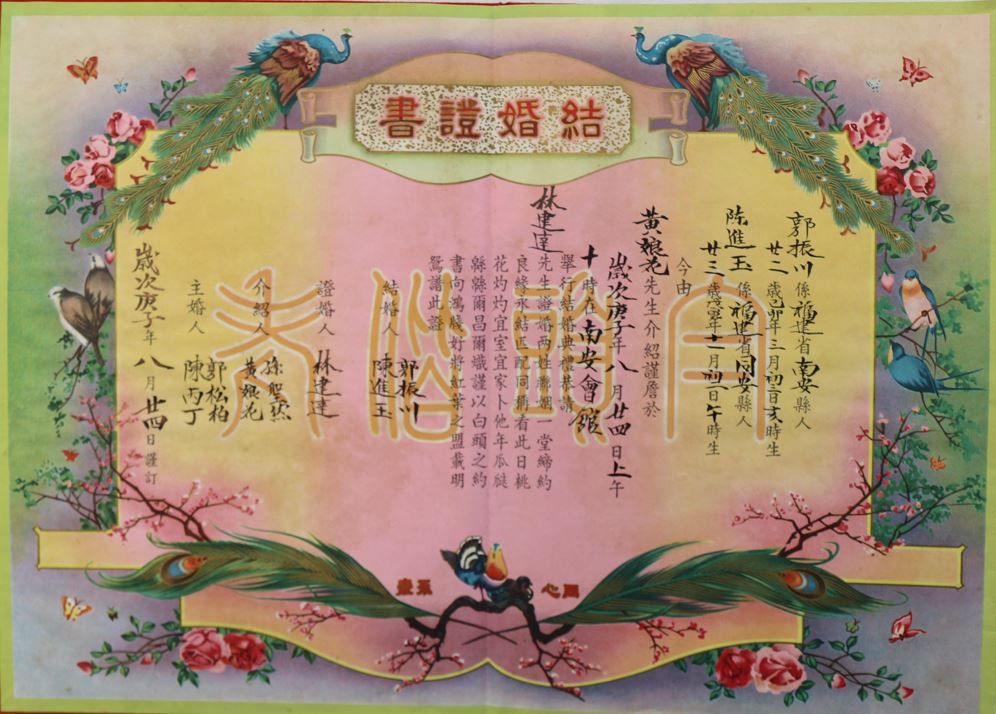 結婚證書
郭振川係福建省南安縣人
廿二歲己卯年三月初三日亥時生
陳進玉係福建省同安縣人
廿三歲戊寅年十一月初一日午時生
今由
黃娘花先生介紹謹詹於
歲次庚子年八月廿四日上午
十時在南安會館
舉行結婚典禮恭請
林建達先生證婚兩姓聯姻一堂締約
良緣永結匹配同稱看此日桃
花灼灼宜室宜家卜他年瓜瓞
緜緜爾昌爾熾謹以白頭之約
書向鴻牋好將紅葉之盟載明
鴛譜此證
結婚人 郭振川
陳進玉
證婚人 林建達
介紹人 孫
黃娘花
主婚人 郭松柏
陳丙丁
歲次庚子年八月廿四日謹訂